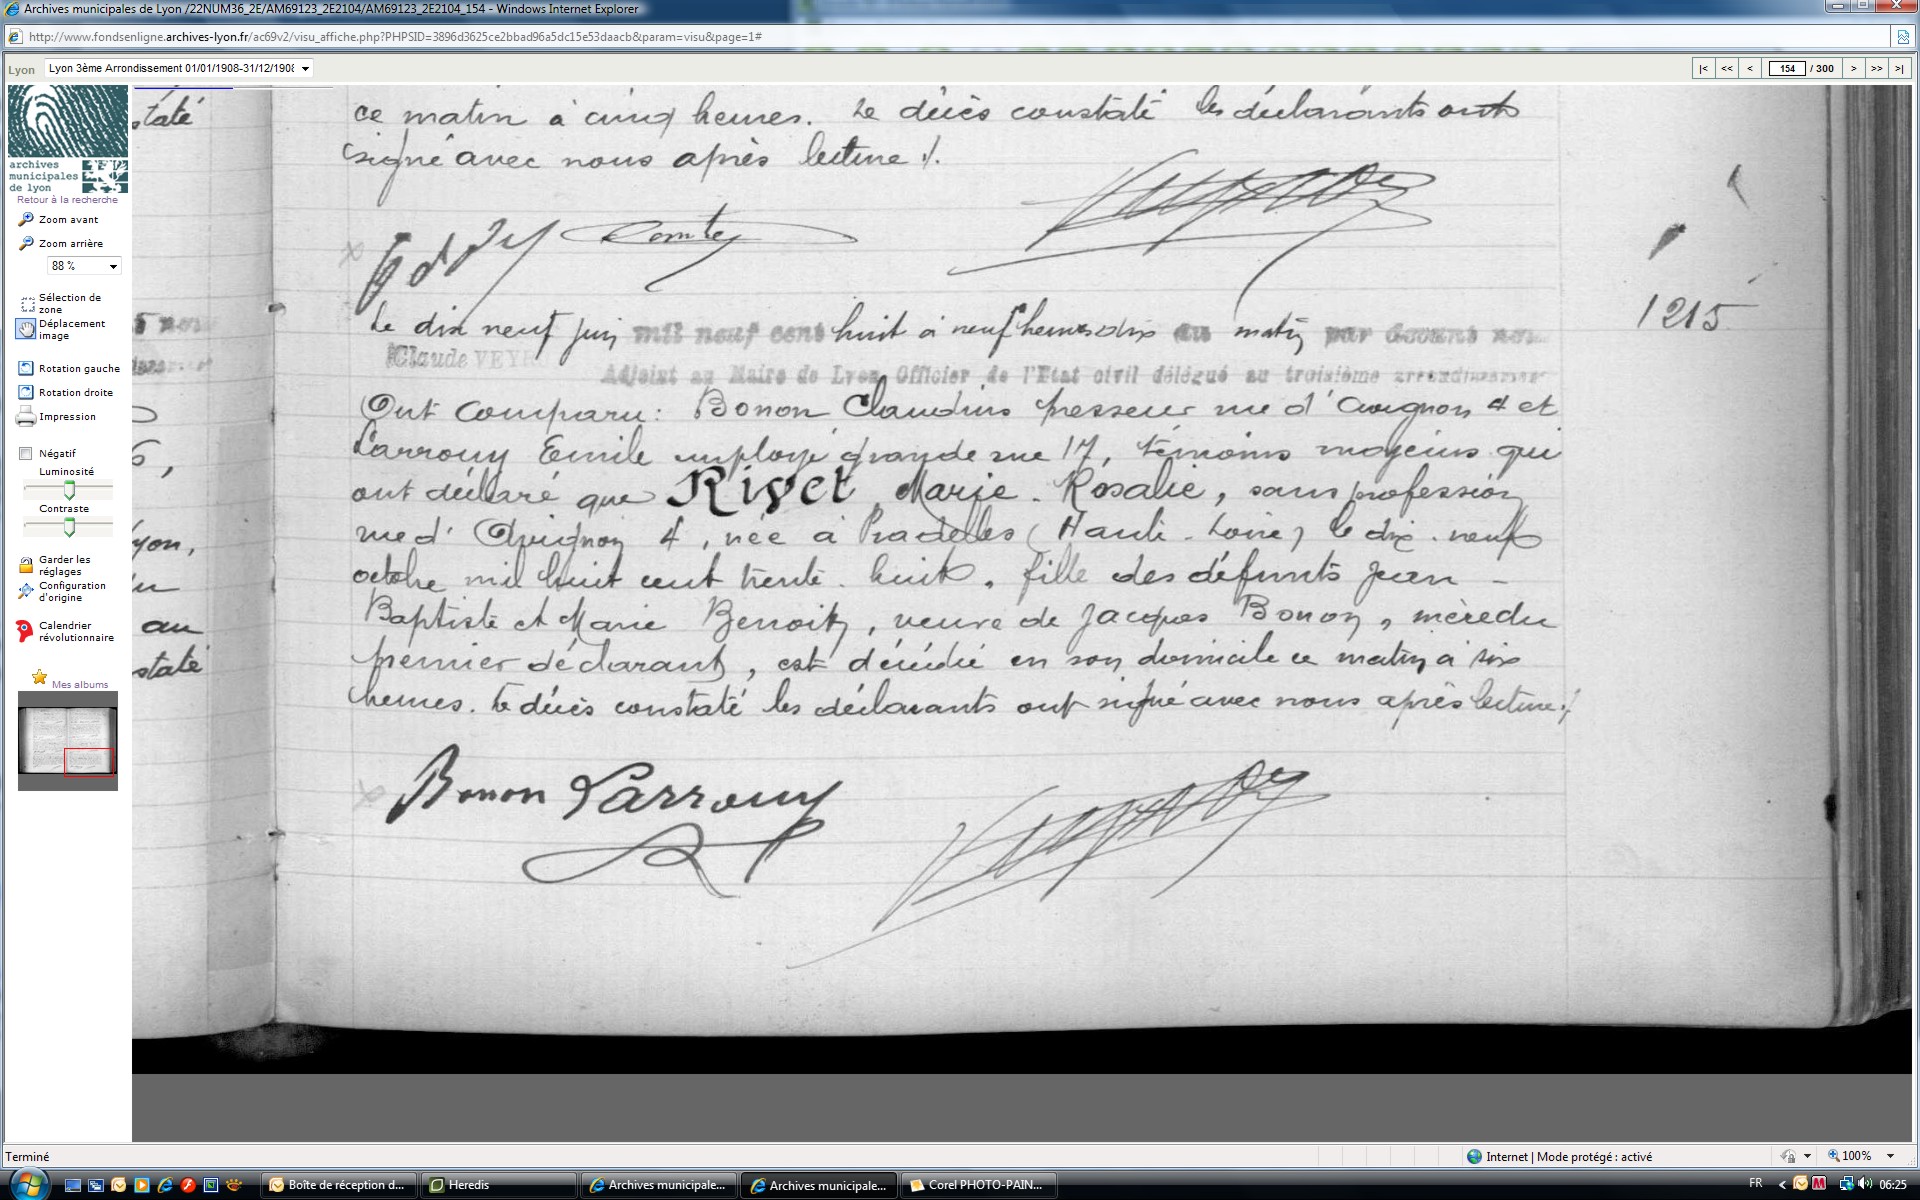 Archives municipales de Lyon /22NUM36_2E/AM69123_2E2104/AM69123_2E2104_154 - Windows Internet Explorer
http://www.fondsenligne.archives-lyon.fr/ac69v2/visu_affiche.php?PHPSID=3896d3625ce2bbad96a5dc15e53daacb&param=visu&page=1#
Lyon
Lyon 3ème Arrondissement 01/01/1908-31/12/1908
|< << < 154 / 300 > >> >|
archives
municipales
de lyon
Retour à la recherche
Zoom avant
Zoom arrière
88 %
Sélection de
zone
Déplacement
image
Rotation gauche
Rotation droite
Impression
Négatif
Luminosité
Contraste
Garder les
réglages
Configuration
d'origine
Calendrier
révolutionnaire
Mes albums
staté
yon,
au
staté
ce matin à cinq heures. Le décès constaté les déclarants ont
signé avec nous après lecture ./.
Comte
1215
Le dix neuf juin mil neuf cent huit à neuf heures dix du matin par devant nous
Claude VEYR
Adjoint au Maire de Lyon Officier de l'Etat civil délégué au troisième arrondissement
Ont comparu : Bonon Claudius presseur rue d'Avignon 4 et
Larrouy Emile employé grande rue 17, témoins majeurs qui
ont déclaré que Rivet Marie - Rosalie, sans profession
rue d'Avignon 4, née à Pradelles (Haute-Loire) le dix-neuf
octobre mil huit cent trente-huit, fille des défunts Jean-
Baptiste et Marie Benoit, veuve de Jacques Bonon, mère du
premier déclarant, est décédée en son domicile ce matin à six
heures. Le décès constaté les déclarants ont signé avec nous après lecture ./.
Bonon Larrouy
Terminé
Internet | Mode protégé : activé
100%
Boîte de réception d...
Heredis
Archives municipale...
Archives municipale...
Corel PHOTO-PAIN...
FR
06:25